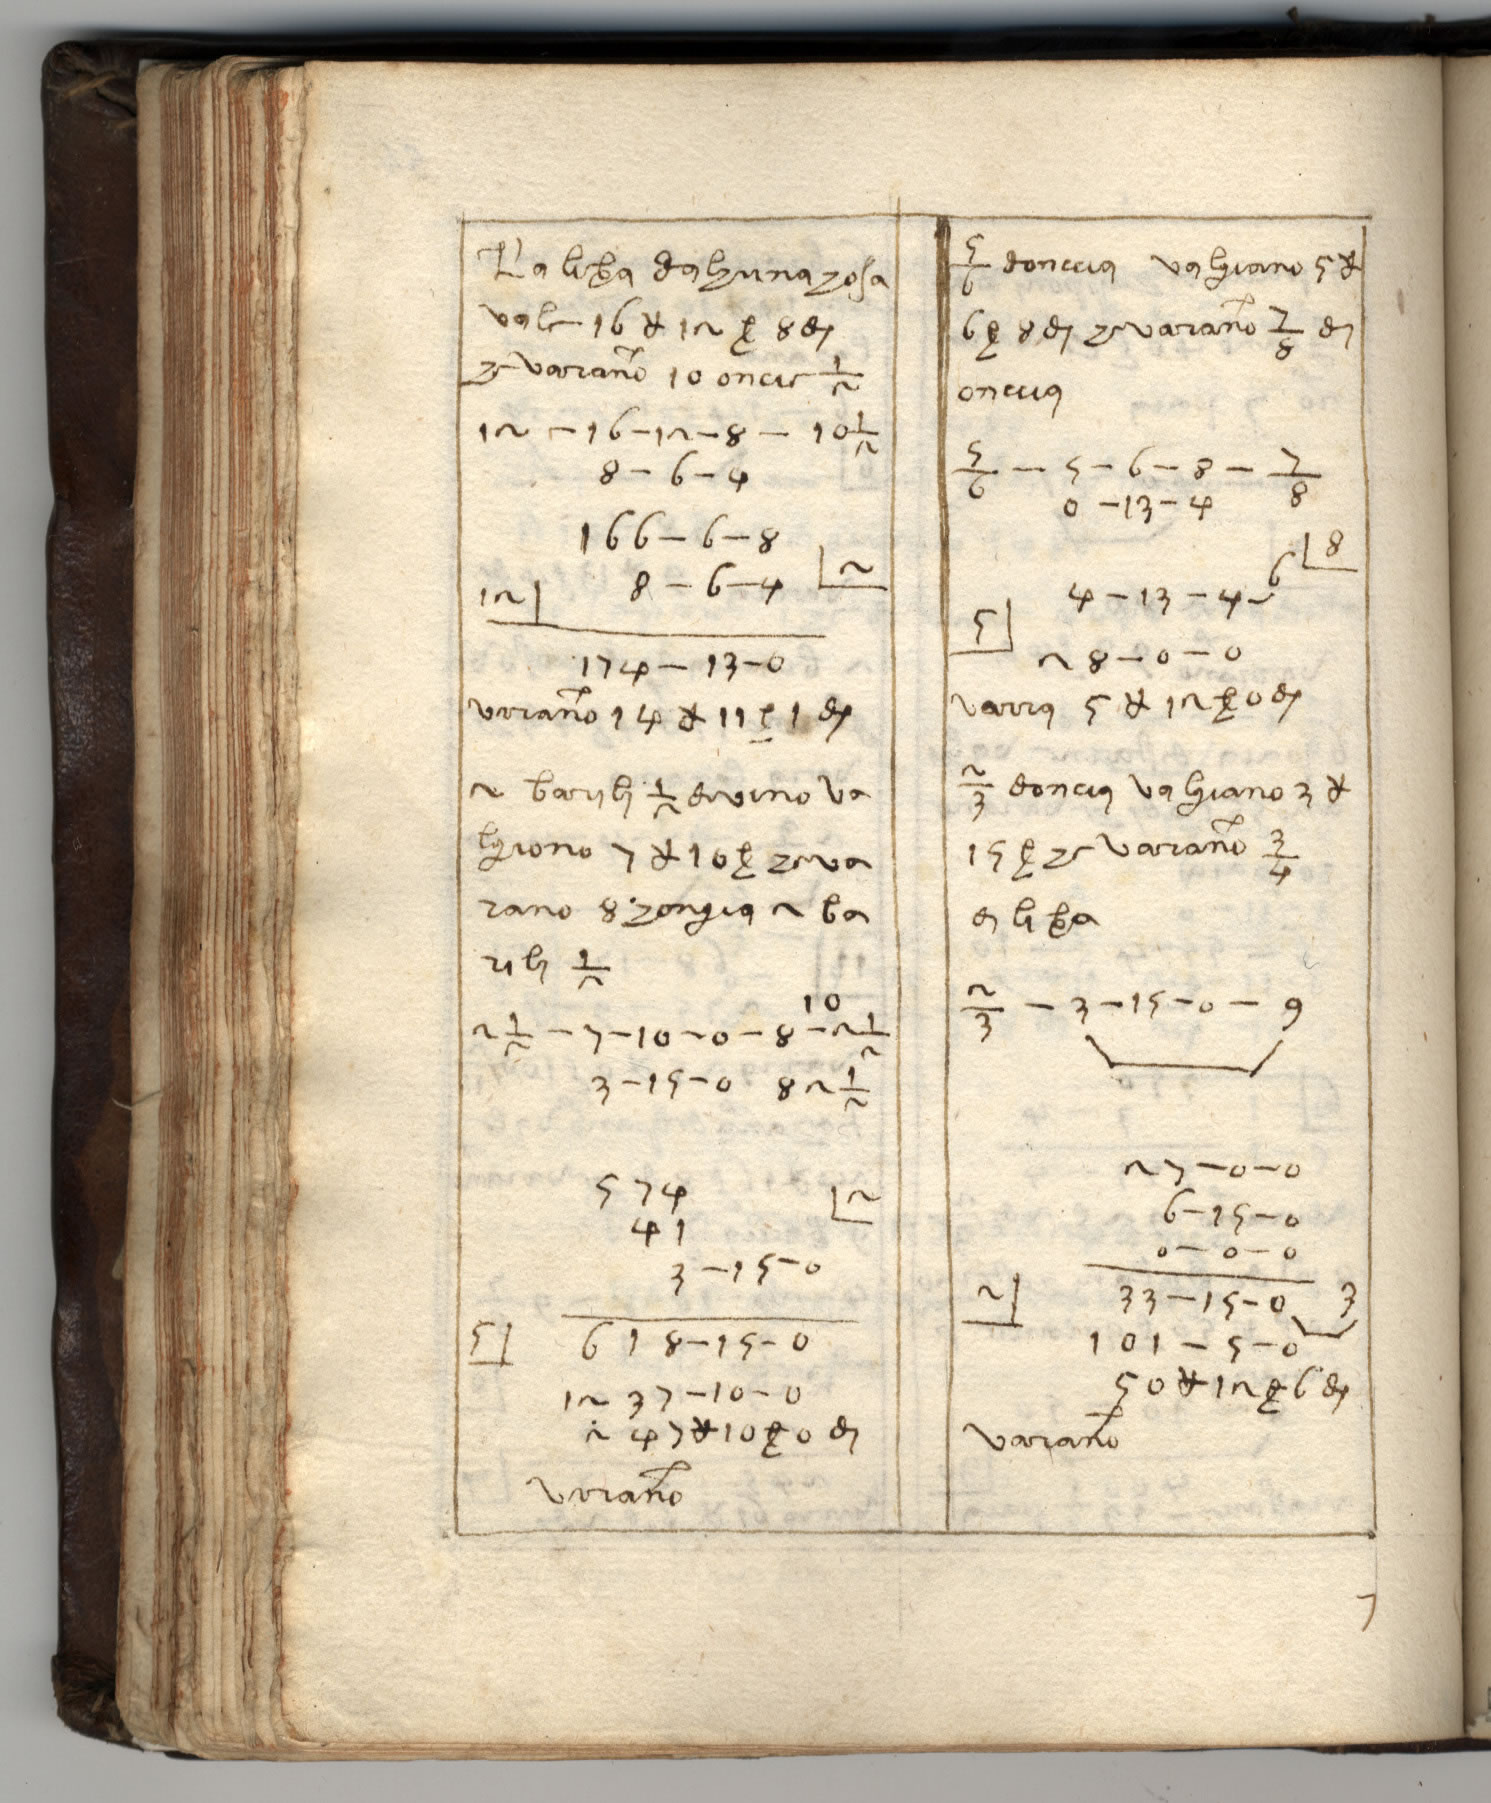 La libra dalzuna zosa
vale 16 ₶ 12 ß 8 di
ze varano 10 oncie 1/2
12 – 16–12–8 – 10 1/2
8–6–4
166–6–8
8–6–4 2
12
174–13–0
varano 14 ₶ 11 ß 1 di
2 barili 1/2 di vino va
lgiono 7 ₶ 10 ß ze va
rano 8 zongia 2 ba
rili 1/2
10
2 1/2 – 7–10–0–8–2 1/2
3–15–0 8 2 1/2
574 2
41
3–15–0
5 618–15–0
1237–10–0
247 ₶ 10 ß 0 di
varano
5/6 doncia valgiano 5 ₶
6 ß 8 di ze varano 7/8 di
oncia
5/6 – 5–6–8 – 7/8
0–13–4
8
4–13–4 6
5
28–0–0
varra 5 ₶ 12 ß 0 di
2/3 doncia valgiano 3 ₶
15 ß ze varano 3/4
di libra
2/3 – 3–15–0 – 9
27–0–0
6–15–0
0–0–0
2 33–15–0 3
101–5–0
50 ₶ 12 ß 6 di
varano
7